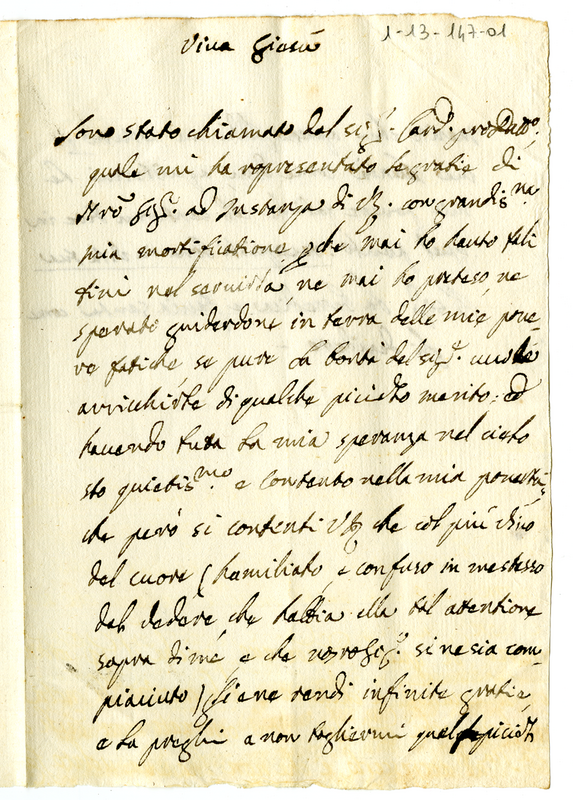 1-13-147-01
Viva Giesù
Sono stato chiamato dal sigr. Card. prodatto.
quale mi ha representato le gratie di
Nro Sigr. ad Instanza di VS. con grandisma
mia mortificatione, che mai ho hauto tali
fini nel servirla, ne mai ho preteso, ne
sperato guiderdone in terra delle mie pove-
re fatiche, se pure la bontà del sigr.
arrichirle di qualche piciolo merito; ed
havendo tutta la mia speranza nel cielo
sto quietismo. e contento nella mia povertà,
che però si contenti VS che col più vivo
del cuore (humiliato, e confuso in me stesso
dal vedere, che habbia ella tal attentione
sopra di me, e che nostro Sigr. si ne sia com-
piaciuto) gliene rendi infinite gratie,
e la preghi a non togliermi quel piciol